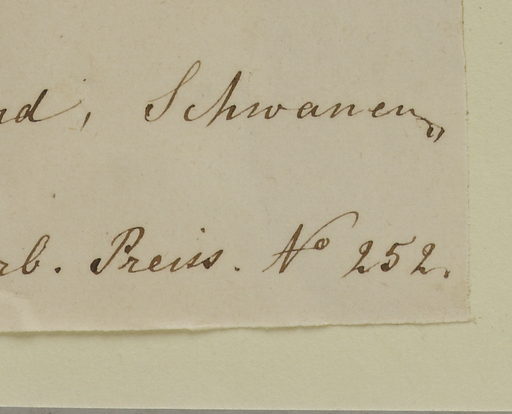 nd, Schwanen„
rb. Preiss. No 252.